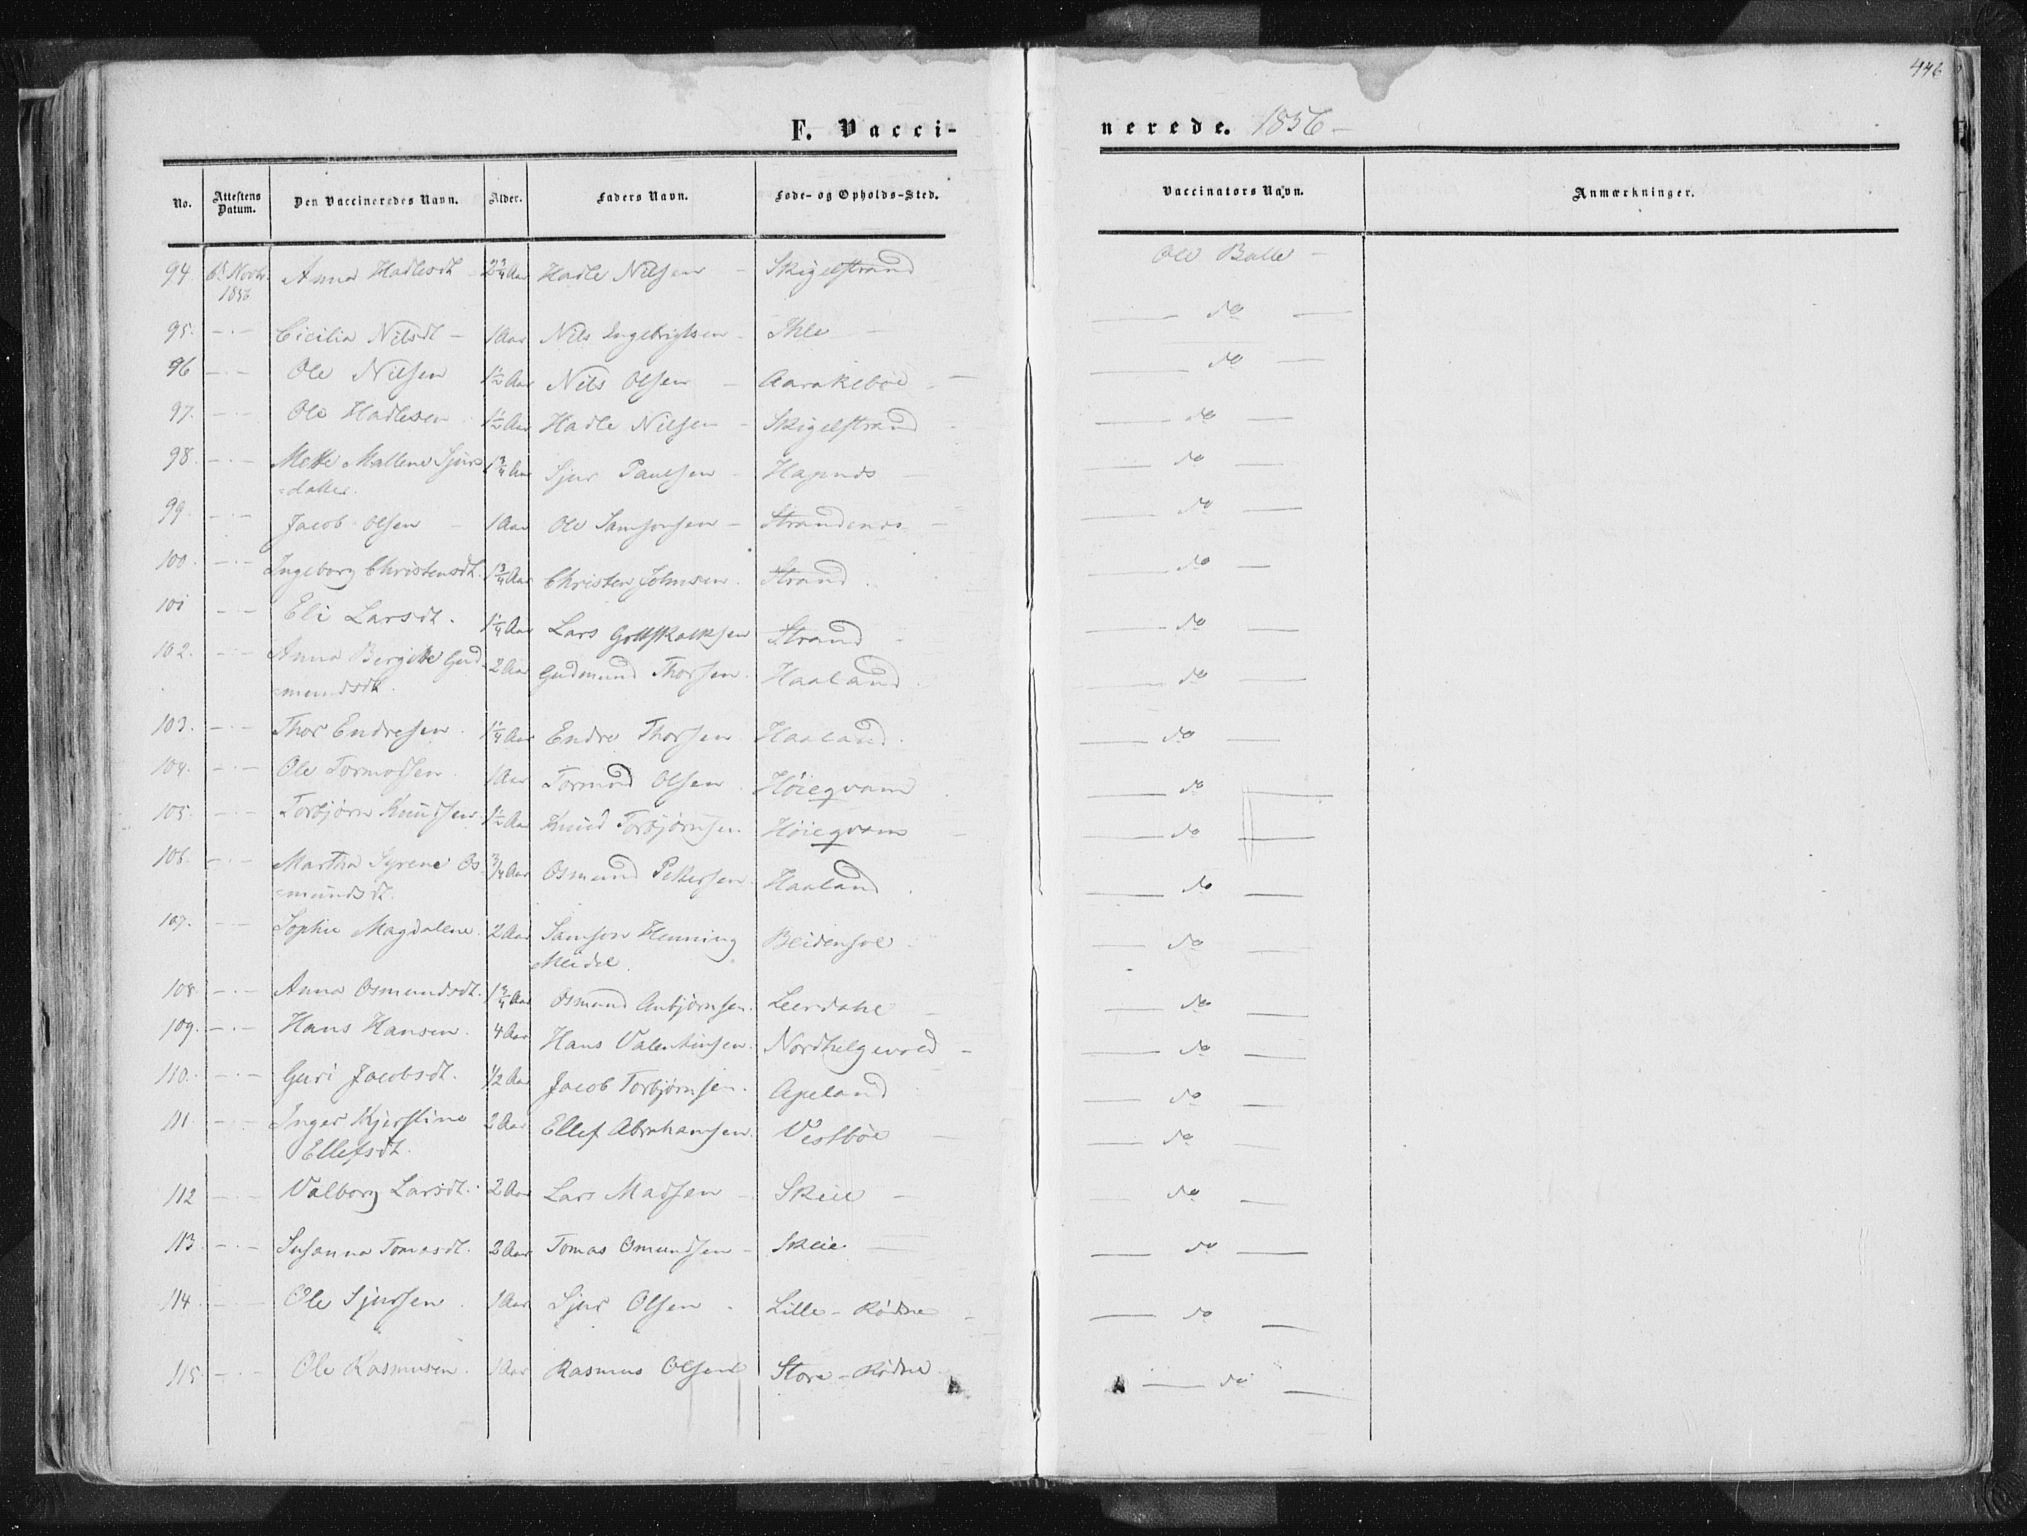 446
F. Vacci-
nerede. 1856 -
No. Attestens Datum. Den Vaccineredes Navn. Alder. Faders Navn. Føde- og Opholds-Sted. Vaccinators Navn. Anmærkninger.
94. 6te Novbr. 1856 Anna Hadlesdt - 2 3/4 Aar Hadle Nilsen - Skigelstrand Ole Balle -
95. - . - Cicilia Nilsdt - 1 Aar Nils Ingebrigtsen - Ihle - do
96 - . - Ole Nilsen 1 1/2 Aar Nils Olsen - Aarakebøe - do
97. - . - Ole Hadlesen 1 1/2 Aar Hadle Nilsen - Skigelstrand - do
98. - . - Mette Mallene Sjurs 1 3/4 Aar Sjur Paulsen - do
=datter.
99. - . - Jacob Olsen - 1 Aar Ole Samsonsen - do
100. - . - Ingeborg Christensdt. 1 3/4 Aar Christen Johnsen. Strand. do
101 - . - Eli Larsdt. 1 1/4 Aar Lars Gottskalksen Strand - do
102. - . - Anna Bergitte Gud 2 Aar Gudmund Thorsen. Haaland. do
=mundsdt.
103. - . - Thor Endresen. 1 1/4 Aar Endre Thorsen Haaland. do
104. - . - Ole Tormodsen. 1 Aar Tormod Olsen. Høieqvam do
105. - . - Torbjørn Knudsen 1 1/2 Aar Knud Torbjørnsen Høieqvam - do
106. - . - Martha Syrene Os 3/4 Aar Osmund Pettersen Haaland. do
=mundsdt.
107. - . - Sophie Magdalene. 2 Aar Samson Henning do
Meidel.
108 - . - Anna Osmundsdt. 1 3/4 Aar Osmund Anbjørnsen. Leerdahl - do
109. - . - Hans Hansen. 4 Aar Hans Valentinsen. Nordhelgevold - do
110. - . - Guri Jacobsdt. 1/2 Aar Jacob Torbjørnsen. Apeland do
111. - . - Inger Kjerstine 2 Aar Ellef Abrahamsen. Vestbøe - do
Ellefsdt.
112 - . - Valborg Larsdt. 2 Aar Lars Madsen - Skeie - do
113. - . - Susanna Tomasdt. 2 Aar Tomas Omundsen - Skeie - do
114. - . - Ole Sjursen. 1 Aar Sjur Olsen - Lille - Rødne - do
115 - . - Ole Rasmusen. 1 Aar Rasmus Olsen Store - Rødne do